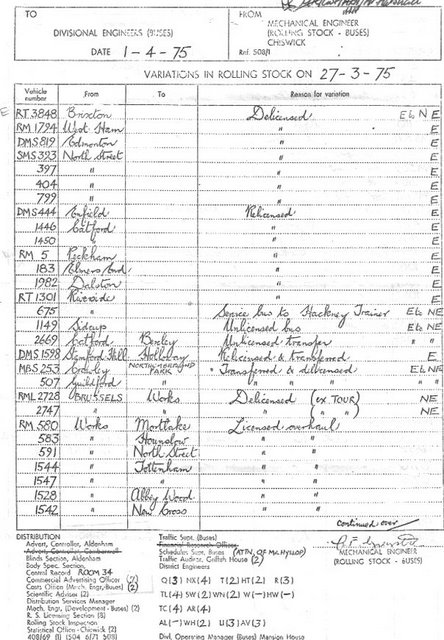 TO
DIVISIONAL ENGINEERS (BUSES)
DATE 1-4-75
FROM
MECHANICAL ENGINEER
(ROLLING STOCK - BUSES)
CHISWICK
Ref. 508/1
VARIATIONS IN ROLLING STOCK ON 27-3-75
Vehicle number From To Reason for variation
E RT 3848 Brixton Delicensed EL N E
RM 1794 West Ham " E
DMS 819 Edmonton " E
SMS 393 North Street " E
397 " " E
404 " " E
799 " " E
DMS 444 Enfield Relicensed E
1446 Catford " E
1450 " " E
RM 5 Peckham " E
183 Elmers End " E
1982 Dalston " E
RT 1301 Riverside " E
675 " Service bus to Stackney Trainer EL NE
1149 Sidcup Unlicensed bus EL NE
2669 Catford Bexley Unlicensed transfer " "
DMS 1598 Stamford Hill Holloway Relicensed & transferred E
MBS 253 Crawley NORTHUMBERLAND PARK Transferred & delicensed EL NE
507 Guildford " " " " " "
RML 2728 BRUSSELS Works Delicensed (ex TOUR) NE
2747 " " " ( " " ) NE
RM 580 Works Mortlake Licensed overhaul
583 " Hounslow " "
591 " North Street " "
1544 " Tottenham " "
1547 " " " "
1528 " Abbey Wood " "
1542 " New Cross " "
continued over
DISTRIBUTION
Advert. Controller, Aldenham
Blinds Section, Aldenham
Body Spec. Section
Central Record ROOM 34
Commercial Advertising Officer (2)
Costs Office (Mech. Engr. Buses) (2)
Scientific Adviser (2)
Distribution Services Manager
Mech. Engr. (Development - Buses) (2)
R. S. Licensing Section (8)
Rolling Stock Inspection
Statistical Office - Chiswick (2)
408/69 (1) 504 6/71 508/1
Traffic Supt. (Buses)
Financial Research Officer
Schedules Supt. Buses (ATTN. OF Mr. HYLLOP)
Traffic Auditor, Griffith House (2)
District Engineers
Q(3) NX(4) T(2) HT(2) R(3)
TL(4) SW(2) WN(2) W(-) HW(-)
TC(4) AR(4)
AL(-) WH(2) U(3) AV(3)
Divl. Operating Manager (Buses) Mansion House
MECHANICAL ENGINEER
(ROLLING STOCK - BUSES)